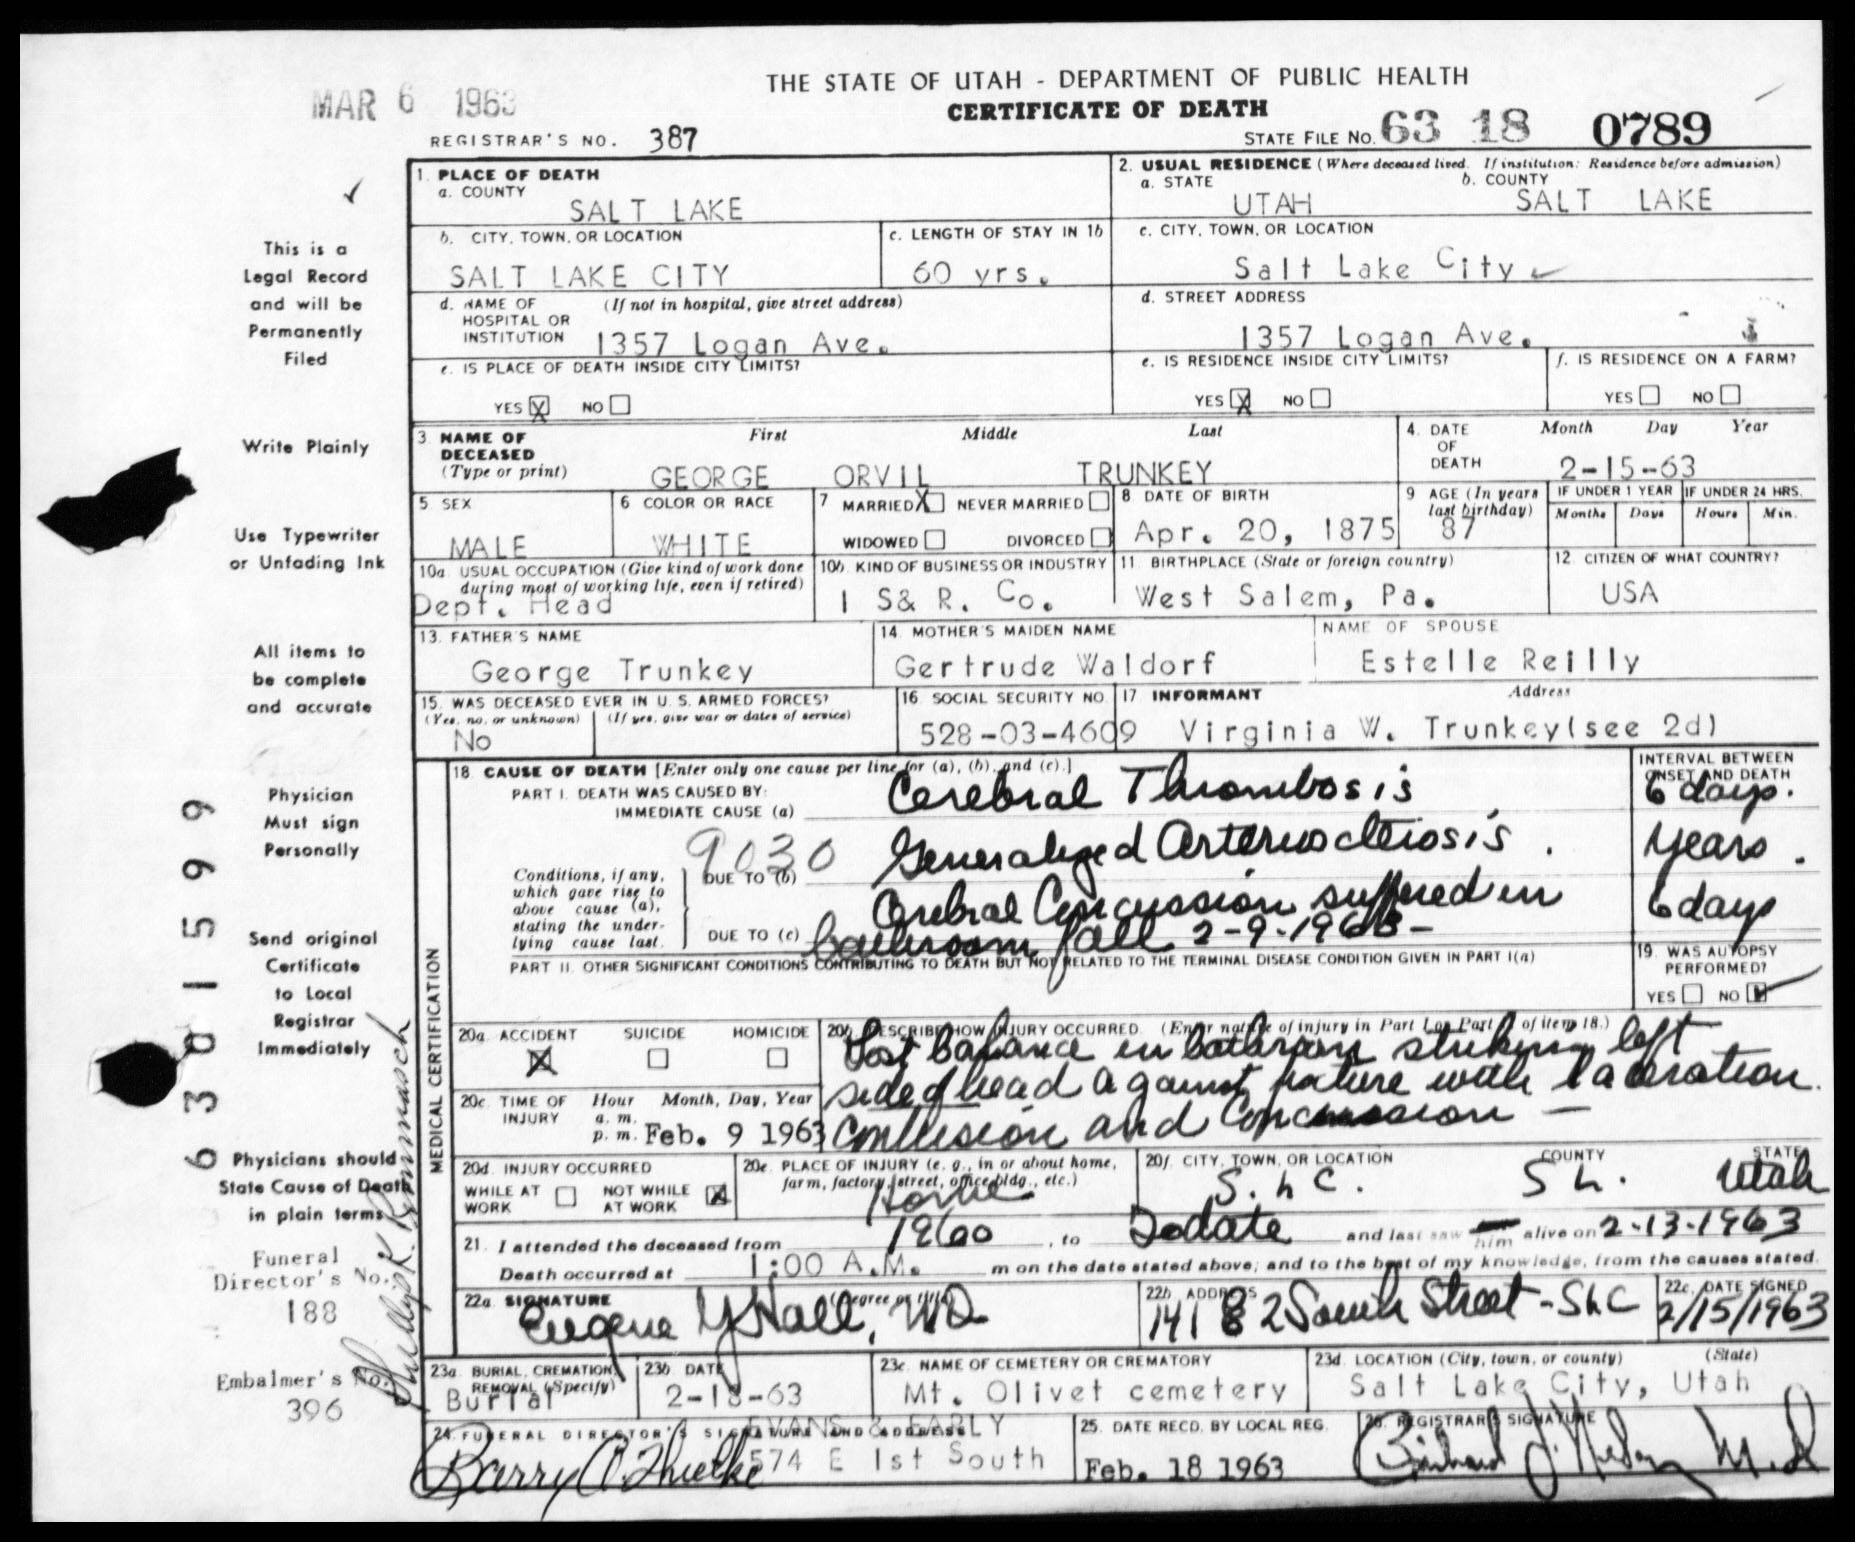 THE STATE OF UTAH - DEPARTMENT OF PUBLIC HEALTH
MAR 6 1963
CERTIFICATE OF DEATH
REGISTRAR'S NO. 387
STATE FILE NO. 63 18 0789
1. PLACE OF DEATH
a. COUNTY
SALT LAKE
2. USUAL RESIDENCE (Where deceased lived. If institution: Residence before admission)
a. STATE
UTAH
b. COUNTY
SALT LAKE
b. CITY, TOWN, OR LOCATION
SALT LAKE CITY
c. LENGTH OF STAY IN 1b
60 yrs.
c. CITY, TOWN, OR LOCATION
Salt Lake City
d. NAME OF HOSPITAL OR INSTITUTION (If not in hospital, give street address)
1357 Logan Ave.
d. STREET ADDRESS
1357 Logan Ave.
e. IS PLACE OF DEATH INSIDE CITY LIMITS?
YES X NO
e. IS RESIDENCE INSIDE CITY LIMITS?
YES X NO
f. IS RESIDENCE ON A FARM?
YES NO
3. NAME OF DECEASED (Type or print)
First Middle Last
GEORGE ORVIL TRUNKEY
4. DATE OF DEATH Month Day Year
2-15-63
5 SEX
MALE
6 COLOR OR RACE
WHITE
7 MARRIED X NEVER MARRIED
WIDOWED DIVORCED
8 DATE OF BIRTH
Apr. 20, 1875
9 AGE (In years last birthday)
87
IF UNDER 1 YEAR IF UNDER 24 HRS.
Months Days Hours Min.
10a. USUAL OCCUPATION (Give kind of work done during most of working life, even if retired)
Dept. Head
10b. KIND OF BUSINESS OR INDUSTRY
I S& R. Co.
11. BIRTHPLACE (State or foreign country)
West Salem, Pa.
12. CITIZEN OF WHAT COUNTRY?
USA
13. FATHER'S NAME
George Trunkey
14. MOTHER'S MAIDEN NAME
Gertrude Waldorf
NAME OF SPOUSE
Estelle Reilly
15. WAS DECEASED EVER IN U.S. ARMED FORCES?
(Yes, no, or unknown) (If yes, give war or dates of service)
No
16. SOCIAL SECURITY NO.
528-03-4609
17 INFORMANT Address
Virginia W. Trunkey(see 2d)
MEDICAL CERTIFICATION
18. CAUSE OF DEATH [Enter only one cause per line for (a), (b), and (c).]
INTERVAL BETWEEN ONSET AND DEATH
PART I. DEATH WAS CAUSED BY:
IMMEDIATE CAUSE (a) Cerebral Thrombosis
6 days.
9030
Conditions, if any, which gave rise to above cause (a), stating the underlying cause last.
DUE TO (b) Generalized Arteriosclerosis.
Years.
DUE TO (c) Cerebral Concussion suffered in
bathroom fall 2-9-1963-
6 days
PART II. OTHER SIGNIFICANT CONDITIONS CONTRIBUTING TO DEATH BUT NOT RELATED TO THE TERMINAL DISEASE CONDITION GIVEN IN PART I(a)
19. WAS AUTOPSY PERFORMED?
YES NO
20a. ACCIDENT SUICIDE HOMICIDE
X
20b. DESCRIBE HOW INJURY OCCURRED. (Enter nature of injury in Part I or Part II of item 18.)
Lost balance in bathroom striking left
side of head against fixture with laceration
Contusion and Concussion -
20c. TIME OF INJURY Hour Month, Day, Year
a. m.
p. m. Feb. 9 1963
20d. INJURY OCCURRED
WHILE AT WORK NOT WHILE AT WORK X
20e. PLACE OF INJURY (e. g., in or about home, farm, factory, street, office bldg., etc.)
Home
20f. CITY, TOWN, OR LOCATION COUNTY STATE
S. L C. S L. Utah
21. I attended the deceased from 1960, to Todate and last saw him alive on 2-13-1963
Death occurred at 1:00 A.M. m on the date stated above; and to the best of my knowledge, from the causes stated.
22a. SIGNATURE (Degree or title)
Eugene Y Hall, MD
22b. ADDRESS
1418 2 South Street - SLC
22c. DATE SIGNED
2/15/1963
23a. BURIAL, CREMATION, REMOVAL (Specify)
Burial
23b. DATE
2-18-63
23c. NAME OF CEMETERY OR CREMATORY
Mt. Olivet cemetery
23d. LOCATION (City, town, or county) (State)
Salt Lake City, Utah
24. FUNERAL DIRECTOR'S SIGNATURE AND ADDRESS
EVANS & EARLY
574 E 1st South
25. DATE RECD. BY LOCAL REG.
Feb. 18 1963
26. REGISTRAR'S SIGNATURE
This is a
Legal Record
and will be
Permanently
Filed
Write Plainly
Use Typewriter
or Unfading Ink
All items to
be complete
and accurate
Physician
Must sign
Personally
Send original
Certificate
to Local
Registrar
Immediately
Physicians should
State Cause of Death
in plain terms
Funeral
Director's No.
188
Embalmer's No.
396